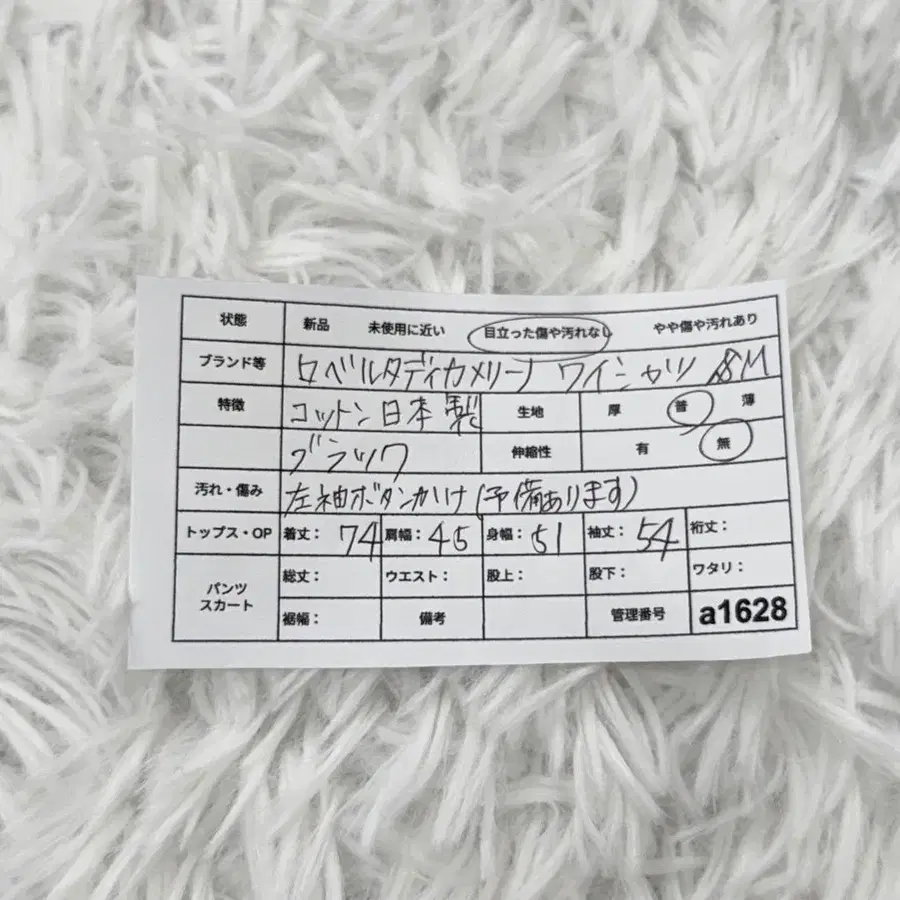 状態 新品 未使用に近い 目立った傷や汚れなし やや傷や汚れあり
ブランド等 ロベルタディカメリーノ ワイシャツ M
特徴 コットン日本製 生地 厚 普 薄
ブラック 伸縮性 有 無
汚れ・傷み 左袖ボタンかけ(予備あります)
トップス・OP 着丈: 74 肩幅: 45 身幅: 51 袖丈: 54 裄丈:
パンツ スカート 総丈: ウエスト: 股上: 股下: ワタリ:
裾幅: 備考 管理番号 a1628